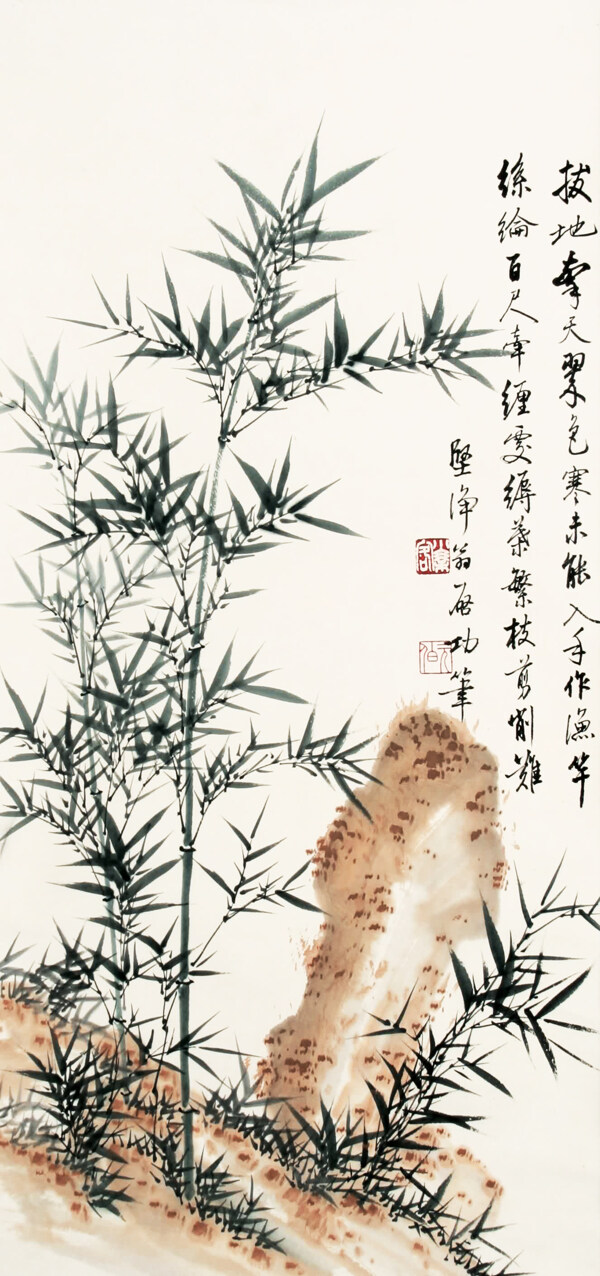 拔地牽天翠色寒未能入手作漁竿
絲綸百尺牽纏受縟葉繁枝剪削難
堅淨翁启功筆